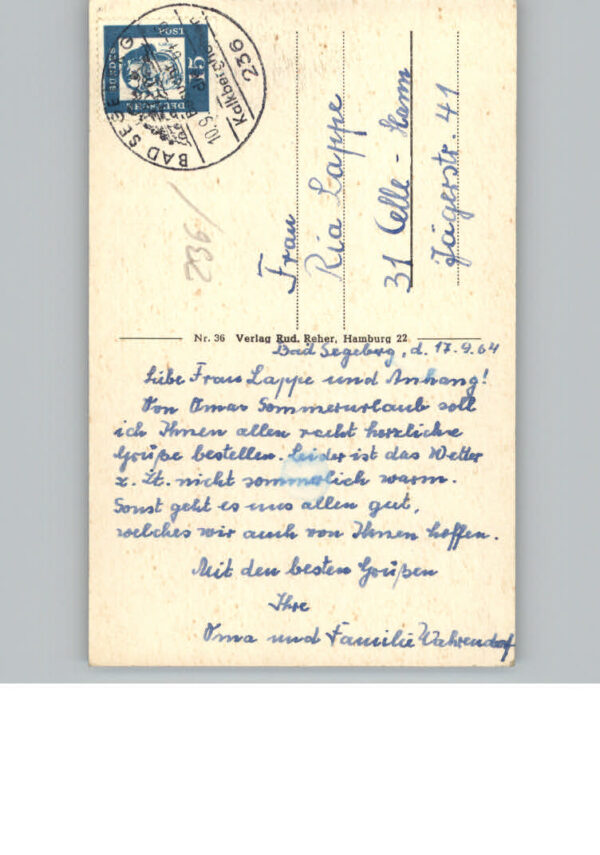 BAD SEGEBERG
236
DEUTSCHE
BUNDESPOST
15
236
Frau
Ria Lappe
31 Celle - Hann
Jägerstr. 41
Nr. 36 Verlag Rud. Reher, Hamburg 22
Bad Segeberg, d. 17.9.64
Liebe Frau Lappe und Anhang!
Von Omas Sommerurlaub soll
ich Ihnen allen recht herzliche
Grüße bestellen. Leider ist das Wetter
z. Zt. nicht sommerlich warm.
Sonst geht es uns allen gut,
welches wir auch von Ihnen hoffen.
Mit den besten Grüßen
Ihre
Oma und Familie Wahrendorf